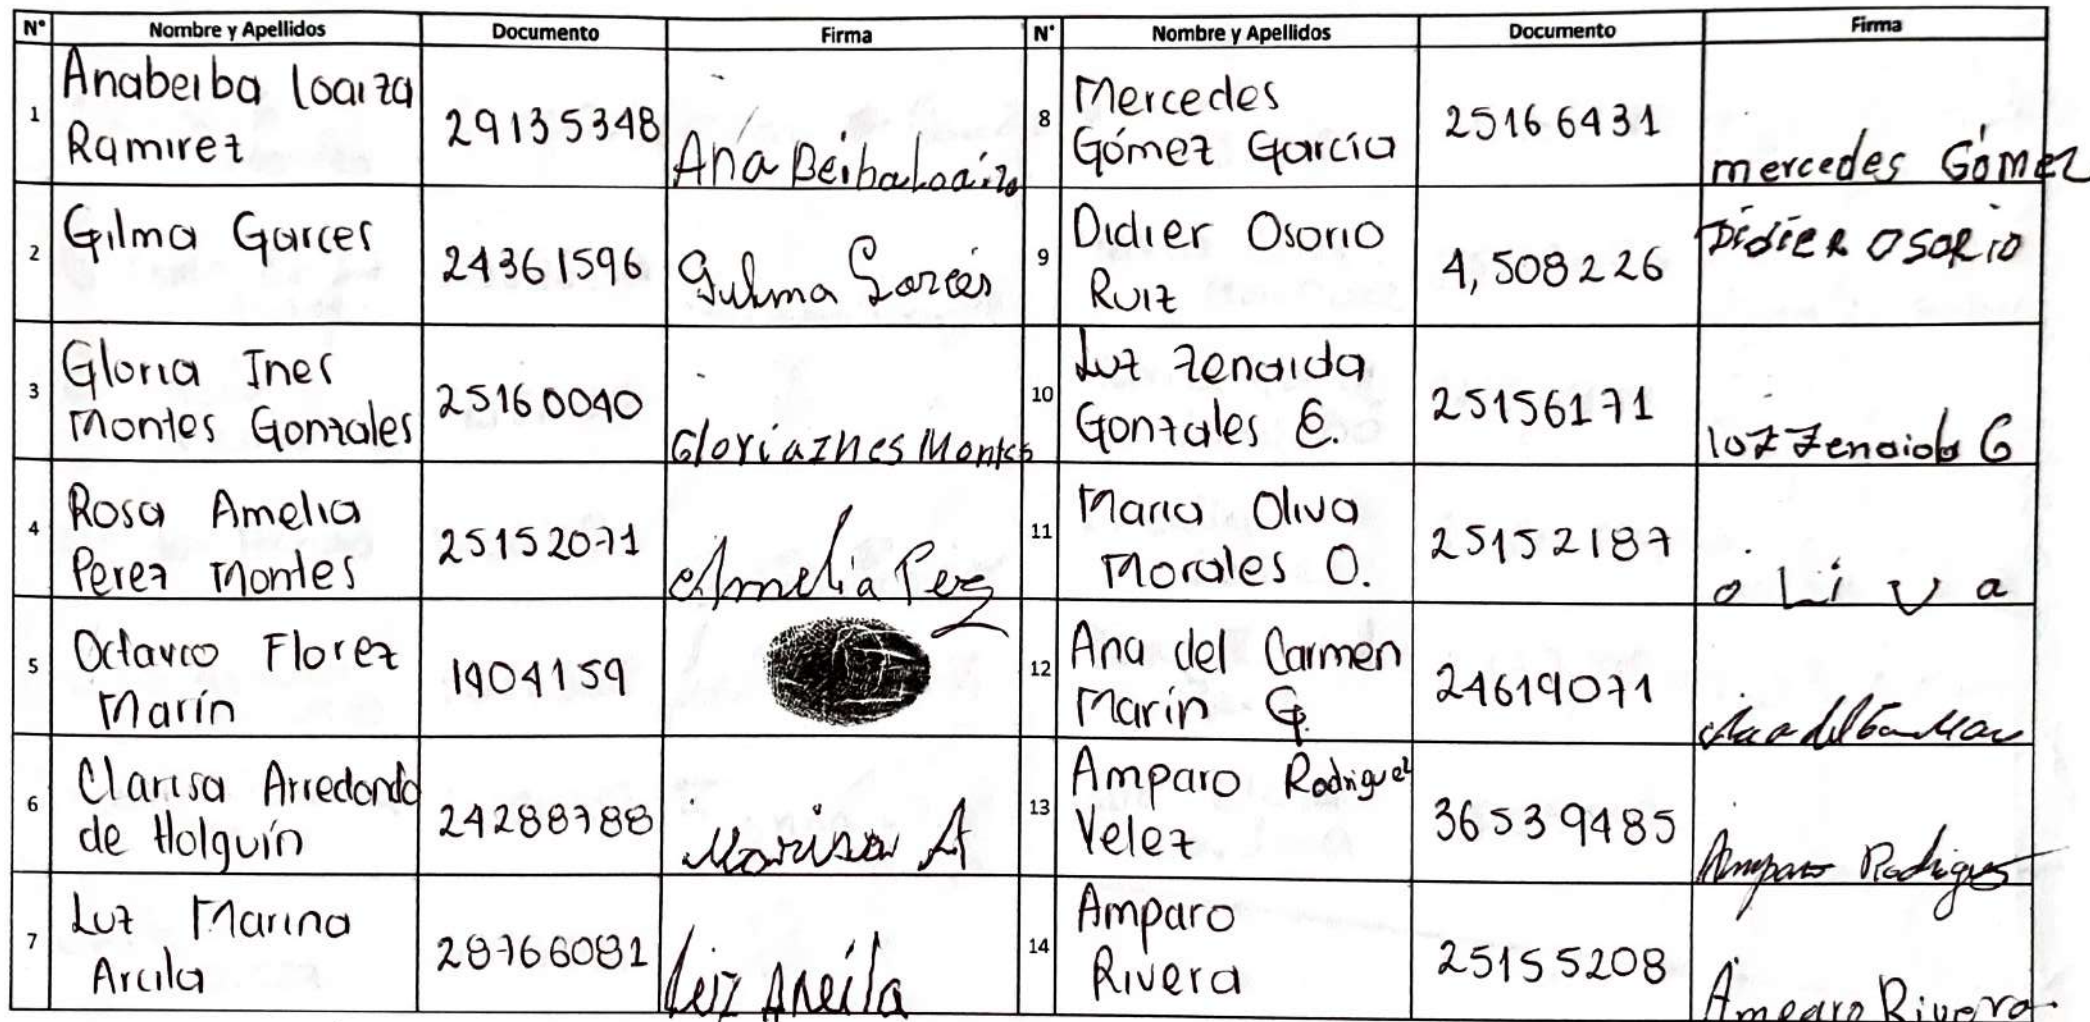 N° Nombre y Apellidos Documento Firma N° Nombre y Apellidos Documento Firma
1 Anabeiba Loaiza Ramirez 29135348 Ana Beiba Loaiza
8 Mercedes Gómez García 25166431 mercedes Gómez
2 Gilma Garces 24361596 Gilma Garcés
9 Didier Osorio Ruiz 4,508226 Didier Osorio
3 Gloria Ines Montes Gonzales 25160040 Gloria Ines Montes
10 Luz Zenaida Gonzales E. 25156171 luz Zenaida G
4 Rosa Amelia Perez Montes 25152071 Amelia Perez
11 Maria Oliva Morales O. 25152187 oLiva
5 Octavio Florez Marín 1404159
12 Ana del Carmen Marín G. 24619071
6 Clarisa Arredondo de Holguín 24288788 A
13 Amparo Rodriguez Velez 36539485 Amparo Rodrigues
7 Luz Marina Arcila 28766081 Luz Arcila
14 Amparo Rivera 25155208 Amparo Rivera